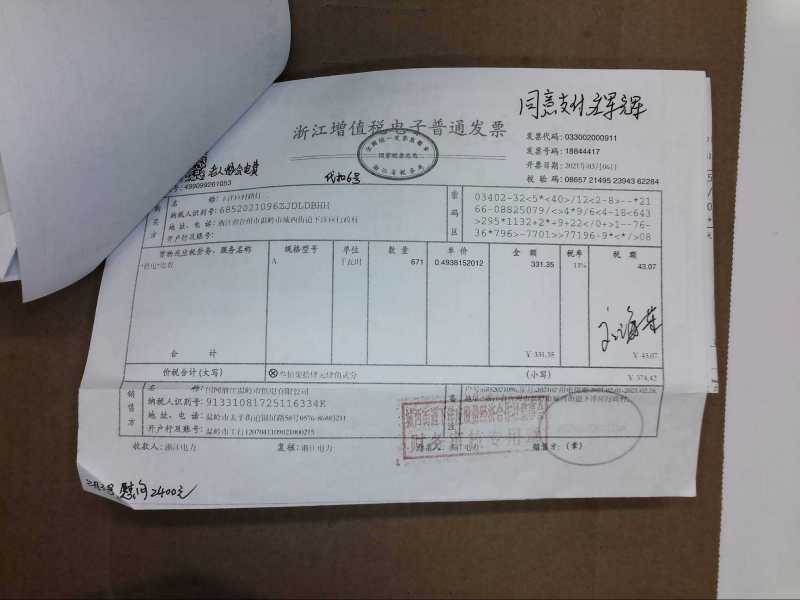 同意支付
浙江增值税电子普通发票
发票代码: 033002000911
发票号码: 18844417
开票日期: 2021年03月06日
校验码: 08657 21495 23943 62284
老人协会电费
代扣6号
号: 499099261053
纳税人识别号: 6852021096ZJDLDBHH
地址、电话:
开户行及账号:
密码区
03402-32<5*<40>/12<2-8>--*21
66-08825079/<>4*9/6<4-18<643
>295*1132+2*+9+22/0+>1--76-
36*796>-7701>>77196-9*<*/>08
货物或应税劳务、服务名称 规格型号 单位 数量 单价 金额 税率 税额
*供电*电费 A 千瓦时 671 0.4938152012 331.35 13% 43.07
合计 ¥ 331.35 ¥ 43.07
价税合计(大写) ⊗叁佰柒拾肆元肆角贰分 (小写) ¥ 374.42
销售方
名称: 国网浙江温岭市供电有限公司
纳税人识别号: 91331081725116334K
地址、电话: 温岭市太平街道
开户行及账号: 温岭市工行1207041109021000215
收款人: 浙江电力 复核: 浙江电力 开票人: 浙江电力 销售方: (章)
财务审核专用章
慰问2400元